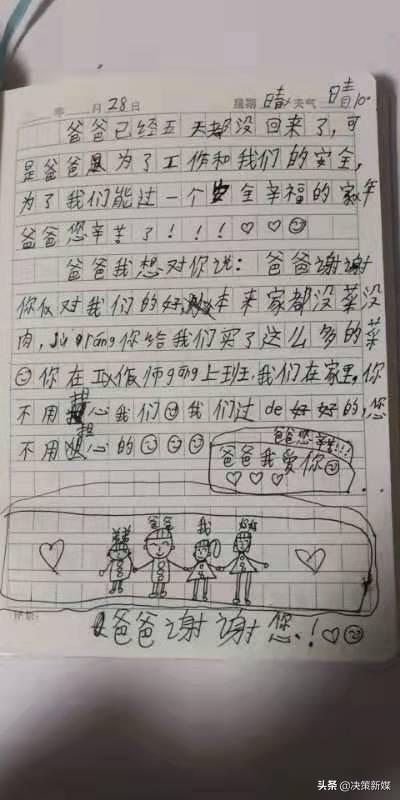 年 月 28 日 星期 晴 天气 晴10°
爸爸已经五天都没回来了,可
是爸爸是为了工作和我们的安全,
为了我们能过一个安全辛福的家年
爸爸您辛苦了!!!♡♡
爸爸我想对你说:爸爸谢谢
你仅对我们的好,本来家都没菜没
肉,你给我们买了这么多的菜
你在工作师gāng上班,我们在家里,你
不用担心我们 我们过de好好的,您
不用担心的
爸爸您辛苦!!!
爸爸我爱你
♡♡♡
爸爸
我
妈妈
爸爸谢谢您!♡
头条 @决策新媒